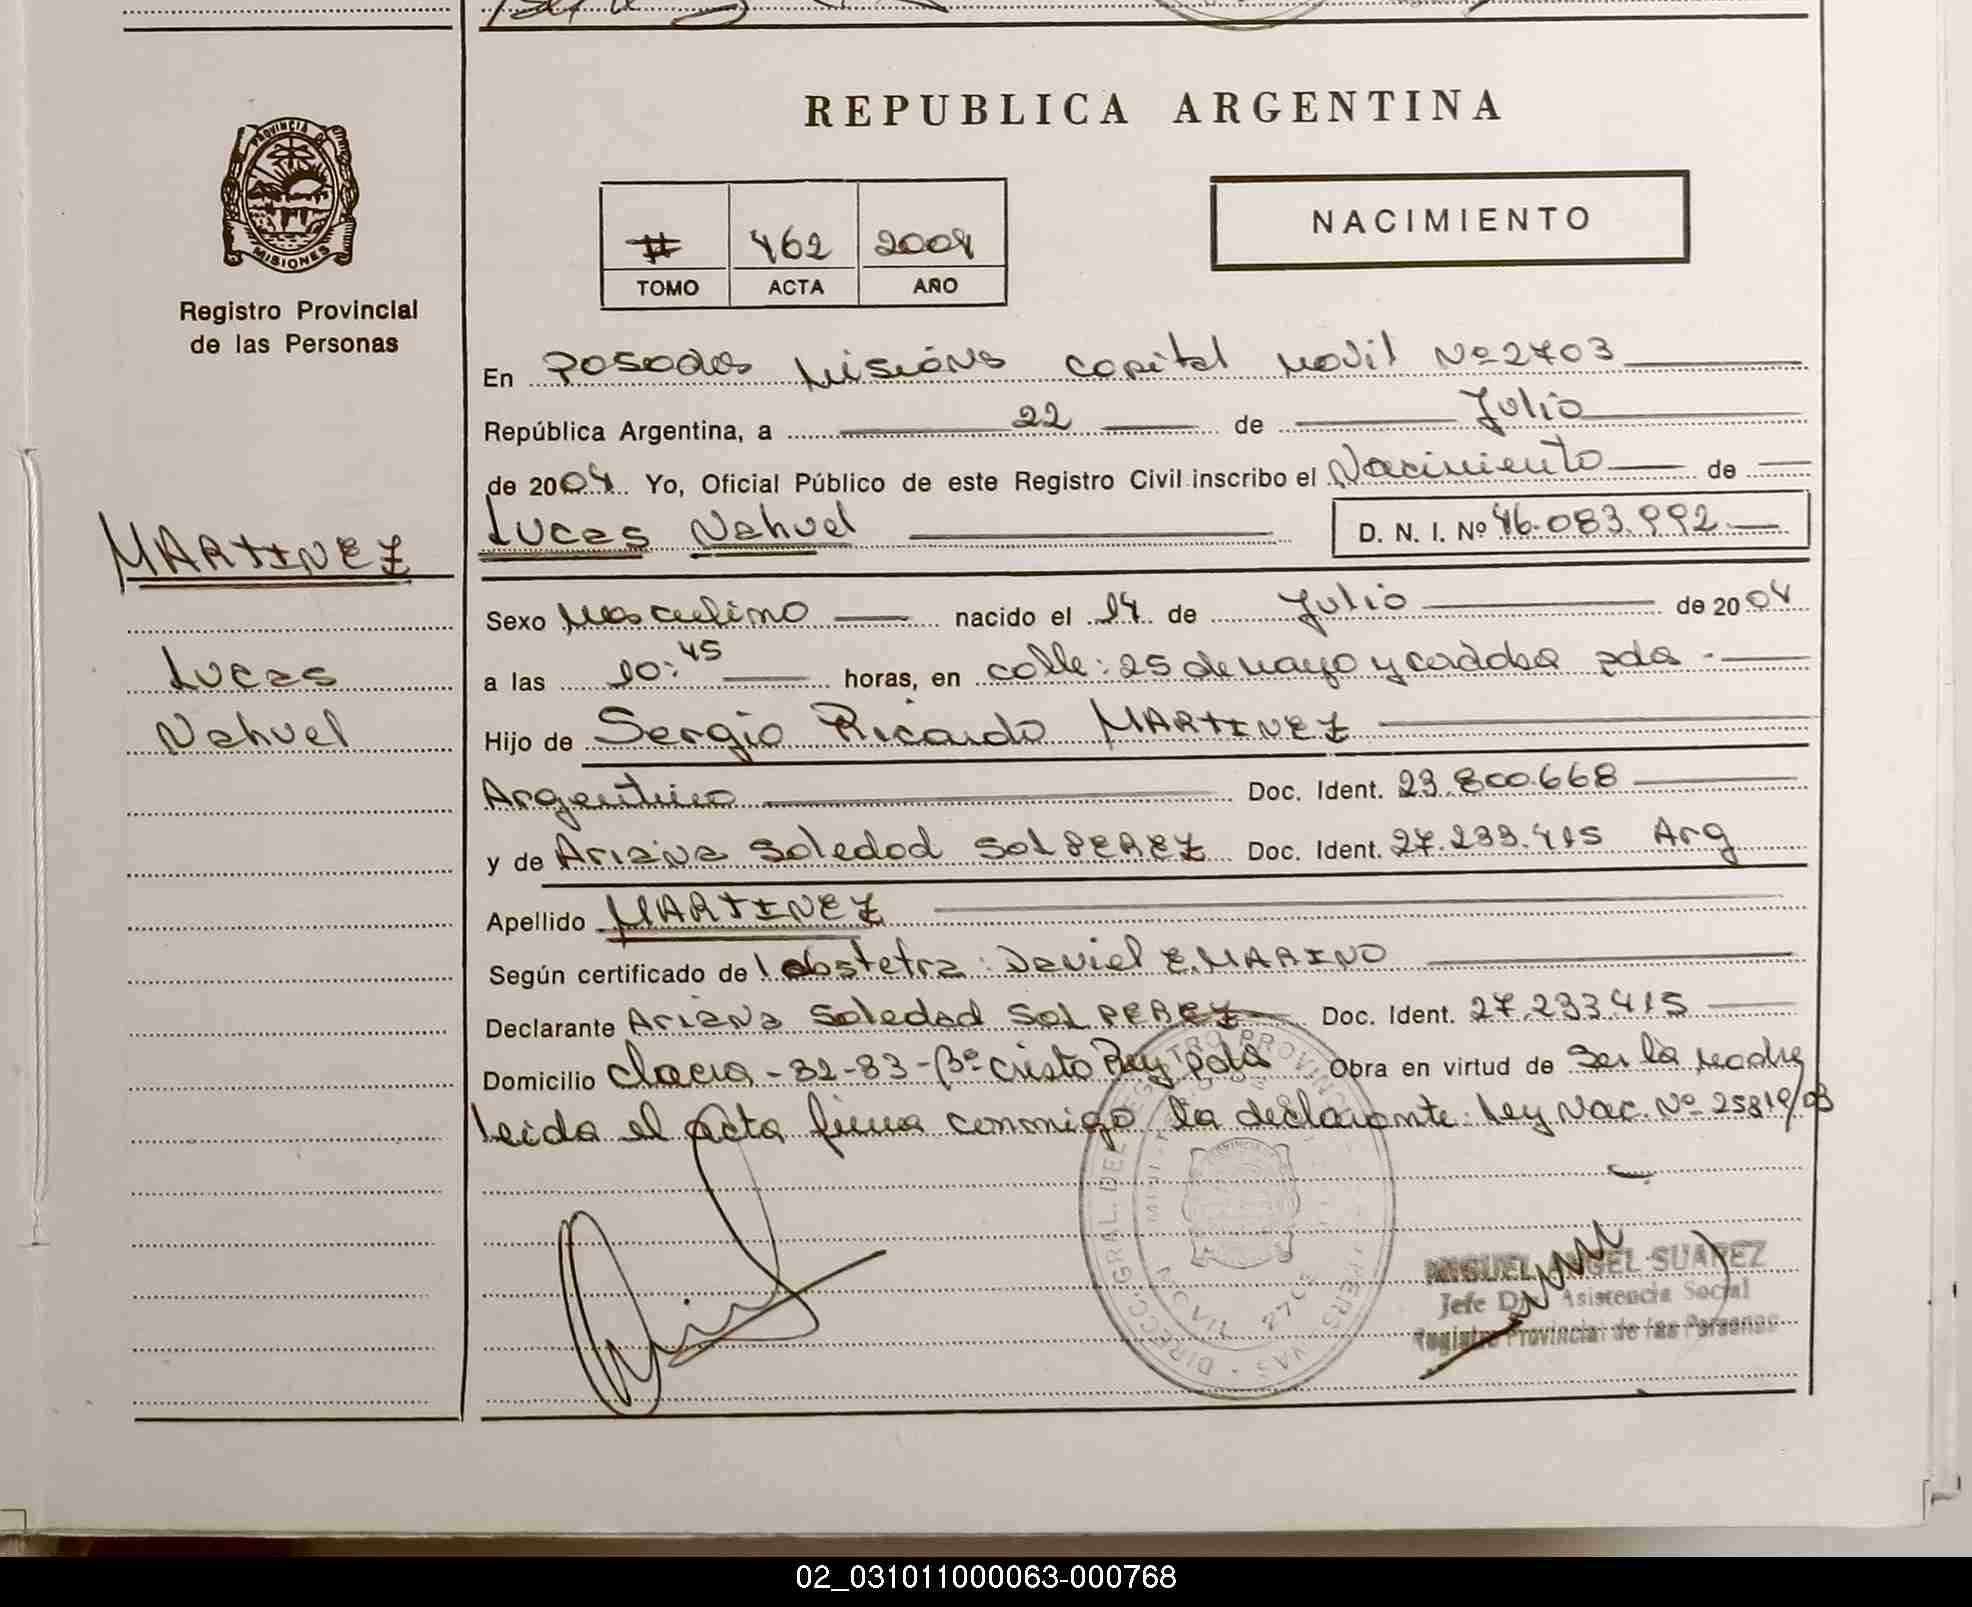 REPUBLICA ARGENTINA
PROVINCIA DE
MISIONES
Registro Provincial
de las Personas
NACIMIENTO
# 462 2004
TOMO ACTA AÑO
En Posadas Misiones Capital Movil Nº 2703
República Argentina, a 22 de Julio
de 2004 Yo, Oficial Público de este Registro Civil inscribo el Nacimiento de
Lucas Nahuel D. N. I. Nº 46.083.992
MARTINEZ
Lucas
Nahuel
Sexo Masculino nacido el 14 de Julio de 2004
a las 10:45 horas, en calle: 25 de mayo y cordoba pdas
Hijo de Sergio Ricardo MARTINEZ
Argentino Doc. Ident. 23.800.668
y de Ariana Soledad SOL PEREZ Doc. Ident. 27.233.415 Arg
Apellido MARTINEZ
Según certificado de obstetra: Daniel E. MARINO
Declarante Ariana Soledad SOL PEREZ Doc. Ident. 27.233.415
Domicilio chacra-32-83-Bº Cristo Rey pdas Obra en virtud de Ser la madre
leida el Acta firma conmigo la declarante. Ley Nac. Nº 25819/03
MOVIL 2703
MIGUEL ANGEL SUAREZ
Jefe Asistencia Social
Registro Provincial de las Personas
02_031011000063-000768